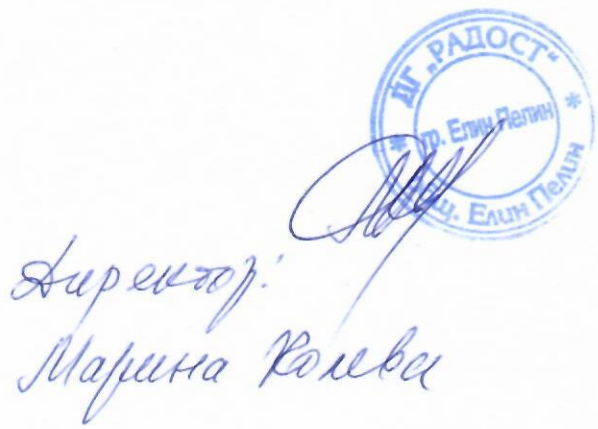 ДГ „РАДОСТ“
гр. Елин Пелин
общ. Елин Пелин
Директор:
Марина Колева